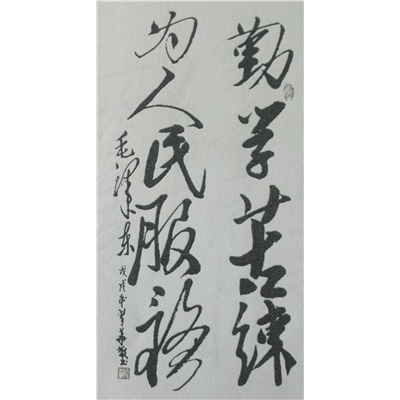 勤学苦练
为人民服务
毛泽东
戊戌年